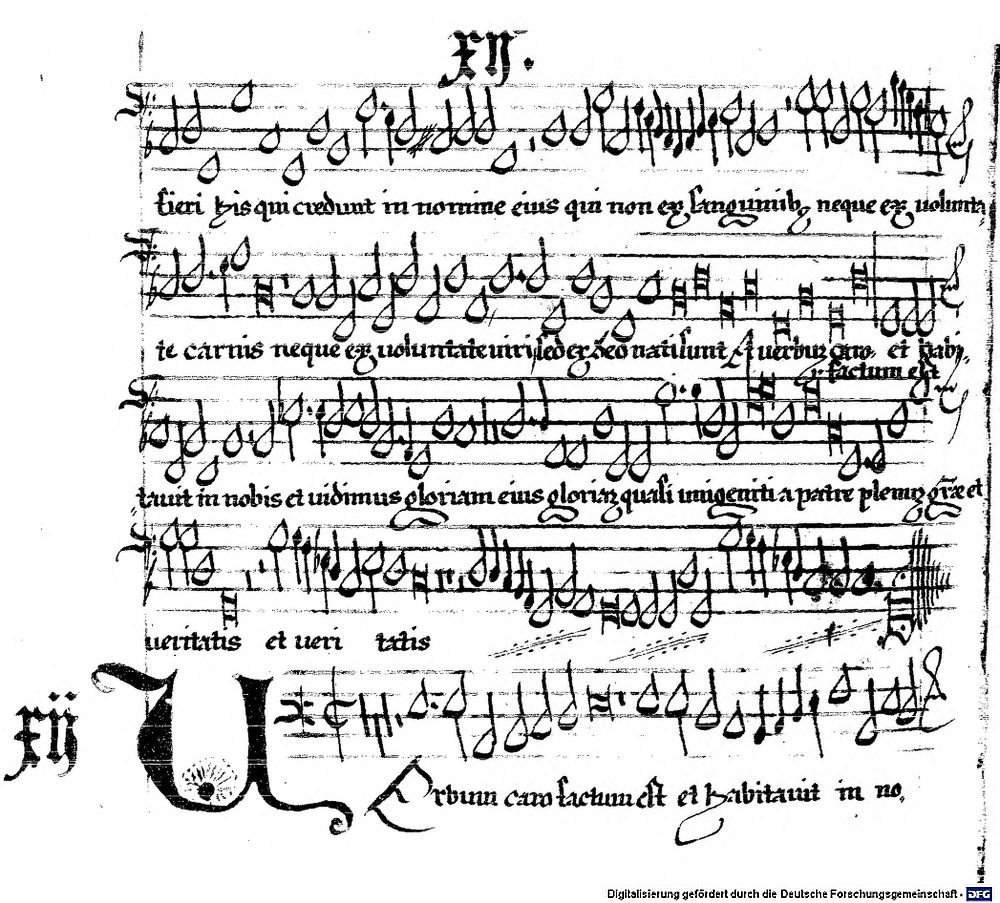 XIJ.
fieri his qui credunt in nomine eius qui non ex sanguinib9 neque ex volunta
te carnis neque ex voluntate viri sed ex deo nati sunt Et verbum caro et habi
factum est
tauit in nobis et uidimus gloriam eius gloriam quasi unigeniti a patre plenum gr̄ae et
ueritatis et ueri tatis
xij
U
Erbum caro factum est et habitauit in no.
Digitalisierung gefördert durch die Deutsche Forschungsgemeinschaft - DFG